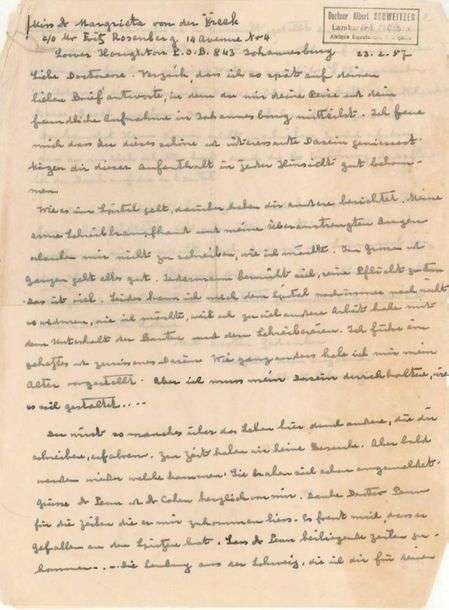 Miss A Margrieta von der Kreek
c/o Mr Fritz Rosenberg 14 Avenue Nr 4
Lower Houghton P.O.B. 843 Johannesburg 23.2.57
Docteur Albert SCHWEITZER
Lambaréné
Liebe Doctoresse. Verzeih, dass ich so spät auf deinen
lieben Brief antworte, in dem du mir deine Reise und dein
freundliche Aufnahme in Johannesburg mitteilst. Ich freue
mich dass du dieses schöne und interessante Dasein geniessest.
Mögen dir dieser Aufenthalt in jeder Hinsicht gut bekom-
men.
Wie es im Spital geht, darüber haben dir andere berichtet. Meine
arme Schreibkrampfhand und meine überanstrengten Augen
erlauben mir nicht zu schreiben, wie ich möchte. Im Grossen und
Ganzen geht alles gut. Jedermann bemüht sich, seine Pflicht zu tun
das ist viel. Leider kann ich mich dem Spital noch immer nicht
so widmen, wie ich möchte, weil ich zu viel andere Arbeit habe mit
dem Unterhalt der Bauten und dem Schreibereien. Ich führe ein
gehetztes und zerrissenes Dasein. Wie ganz anders habe ich mir mein
Alter vorgestellt. Aber ich muss mein Dasein durchhalten, wie
es sich gestaltet....
Du wirst so manches über das Leben hier durch andere, die dir
schreiben, erfahren. Zur Zeit haben wir keine Besuche. Aber bald
werden wieder welche kommen. Sie haben sich schon angemeldet.
Grüsse Dr Penn und Dr Cohen herzlich von mir. Danke Doctor Penn
für die Zeilen die er mir zukommen liess. Es freut mich, dass er
Gefallen an der hat. Lass Dr Penn beiliegende Zeilen zu-
kommen.... die Sendung aus der Schweiz, die ich dir für deinen